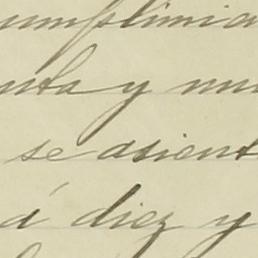 cumplimia
nta y nu
se asient
á diez y